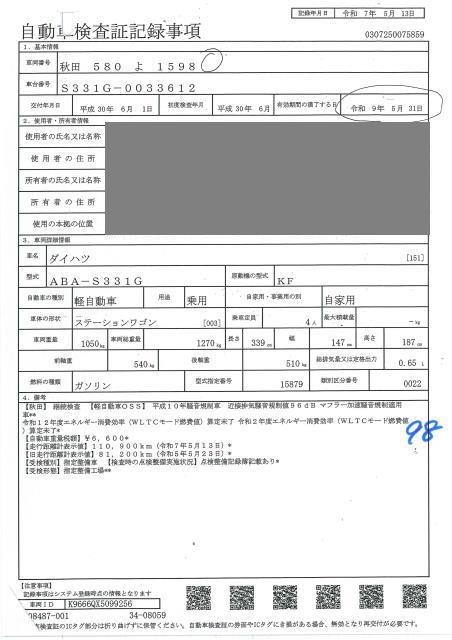 記録年月日 令和 7年 5月 13日
自動車検査証記録事項
0307250075859
1. 基本情報
車両番号 秋田 580 よ 1598
車台番号 S331G-0033612
交付年月日 平成 30年 6月 1日 初度検査年月 平成 30年 6月 有効期間の満了する日 令和 9年 5月 31日
2. 使用者・所有者情報
使用者の氏名又は名称
使用者の住所
所有者の氏名又は名称
所有者の住所
使用の本拠の位置
3. 車両詳細情報
車名 ダイハツ [151]
型式 ABA-S331G 原動機の型式 KF
自動車の種別 軽自動車 用途 乗用 自家用・事業用の別 自家用
車体の形状 ステーションワゴン [003] 乗車定員 4人 最大積載量 -kg
車両重量 1050kg 車両総重量 1270kg 長さ 339cm 幅 147cm 高さ 187cm
前軸重 540kg 後軸重 510kg 総排気量又は定格出力 0.65 L
燃料の種類 ガソリン 型式指定番号 15879 類別区分番号 0022
4. 備考
【秋田】 継続検査 【軽自動車OSS】 平成10年騒音規制車 近接排気騒音規制値96dB マフラー加速騒音規制適用
車**
令和12年度エネルギー消費効率（WLTCモード燃費値）算定未了 令和2年度エネルギー消費効率（WLTCモード燃費値
）算定未了*
【自動車重量税額】¥6,600*
【走行距離計表示値】110,900km（令和7年5月13日）*
【旧走行距離計表示値】81,200km（令和5年5月23日）*
【受検種別】指定整備車 【検査時の点検整備実施状況】点検整備記録簿記載あり*
【受検形態】指定整備工場**
98
【注意事項】
記録事項はシステム登録時点の情報となります
車両ID K9666QX5099256
08487-001 34-08059
車検査証のICタグ部分は折り曲げずに保管ください。自動車検査証の券面やICタグに き損がある場合、無効となり再交付が必要です。